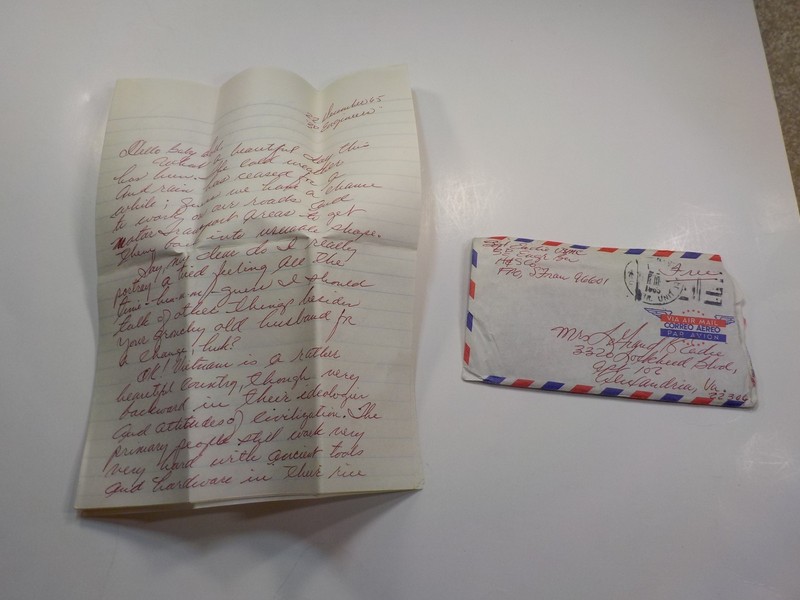 22 December 65
"Engineers"
Hello Baby
What a beautiful day this
has been. The cold weather
And rain has ceased for a
while; Guess we have a chance
to work on our roads and
Motor transport Areas to get
them back into useable shape.
Say, my dear do I really
portray a tired feeling All the
time. I guess I should
talk of other things besides
Your grouchy old husband for
a change, huh?
Ok! Vietnam is a rather
beautiful country, though very
backward in their ideologies
And Attitudes of civilization. The
primary people still work very
very hard with ancient tools
And hardware in their rice
Sgt. Eadie USMC
H&S Co
FPO, S Fran 96601
Free
1965
VIA AIR MAIL
CORREO AEREO
PAR AVION
Mrs. Eadie
3320 Lockheed Blvd,
Apt 102
Alexandria, Va.
22306